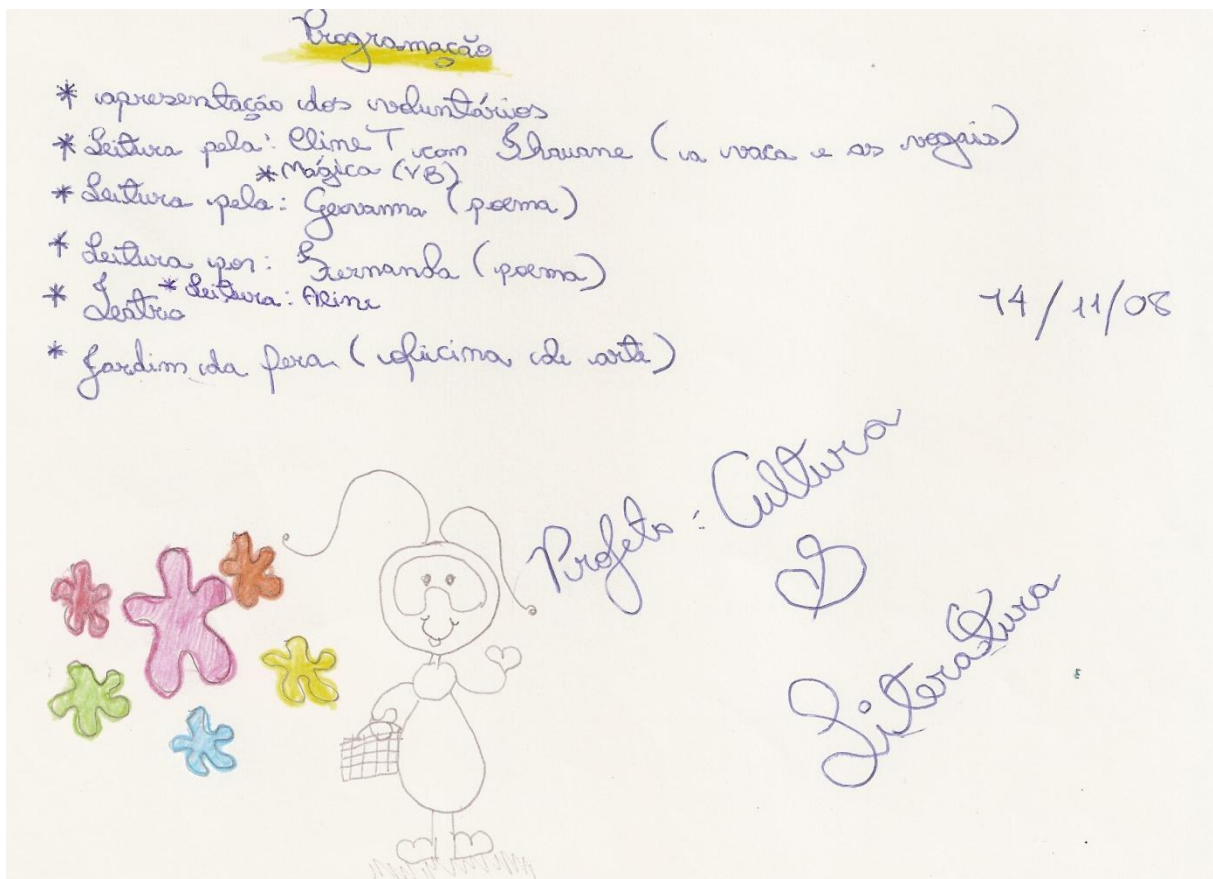 Programação
* apresentação dos voluntários
* Leitura pela: Cline T com Shauane (a vaca e as vogais)
* Mágica (VB)
* Leitura pela: Geovanna (poema)
* Leitura por: Fernanda (poema)
* Teatro * Leitura: Aline
14/11/08
* Jardim da Pera (oficina de arte)
Projeto: Cultura
Literatura